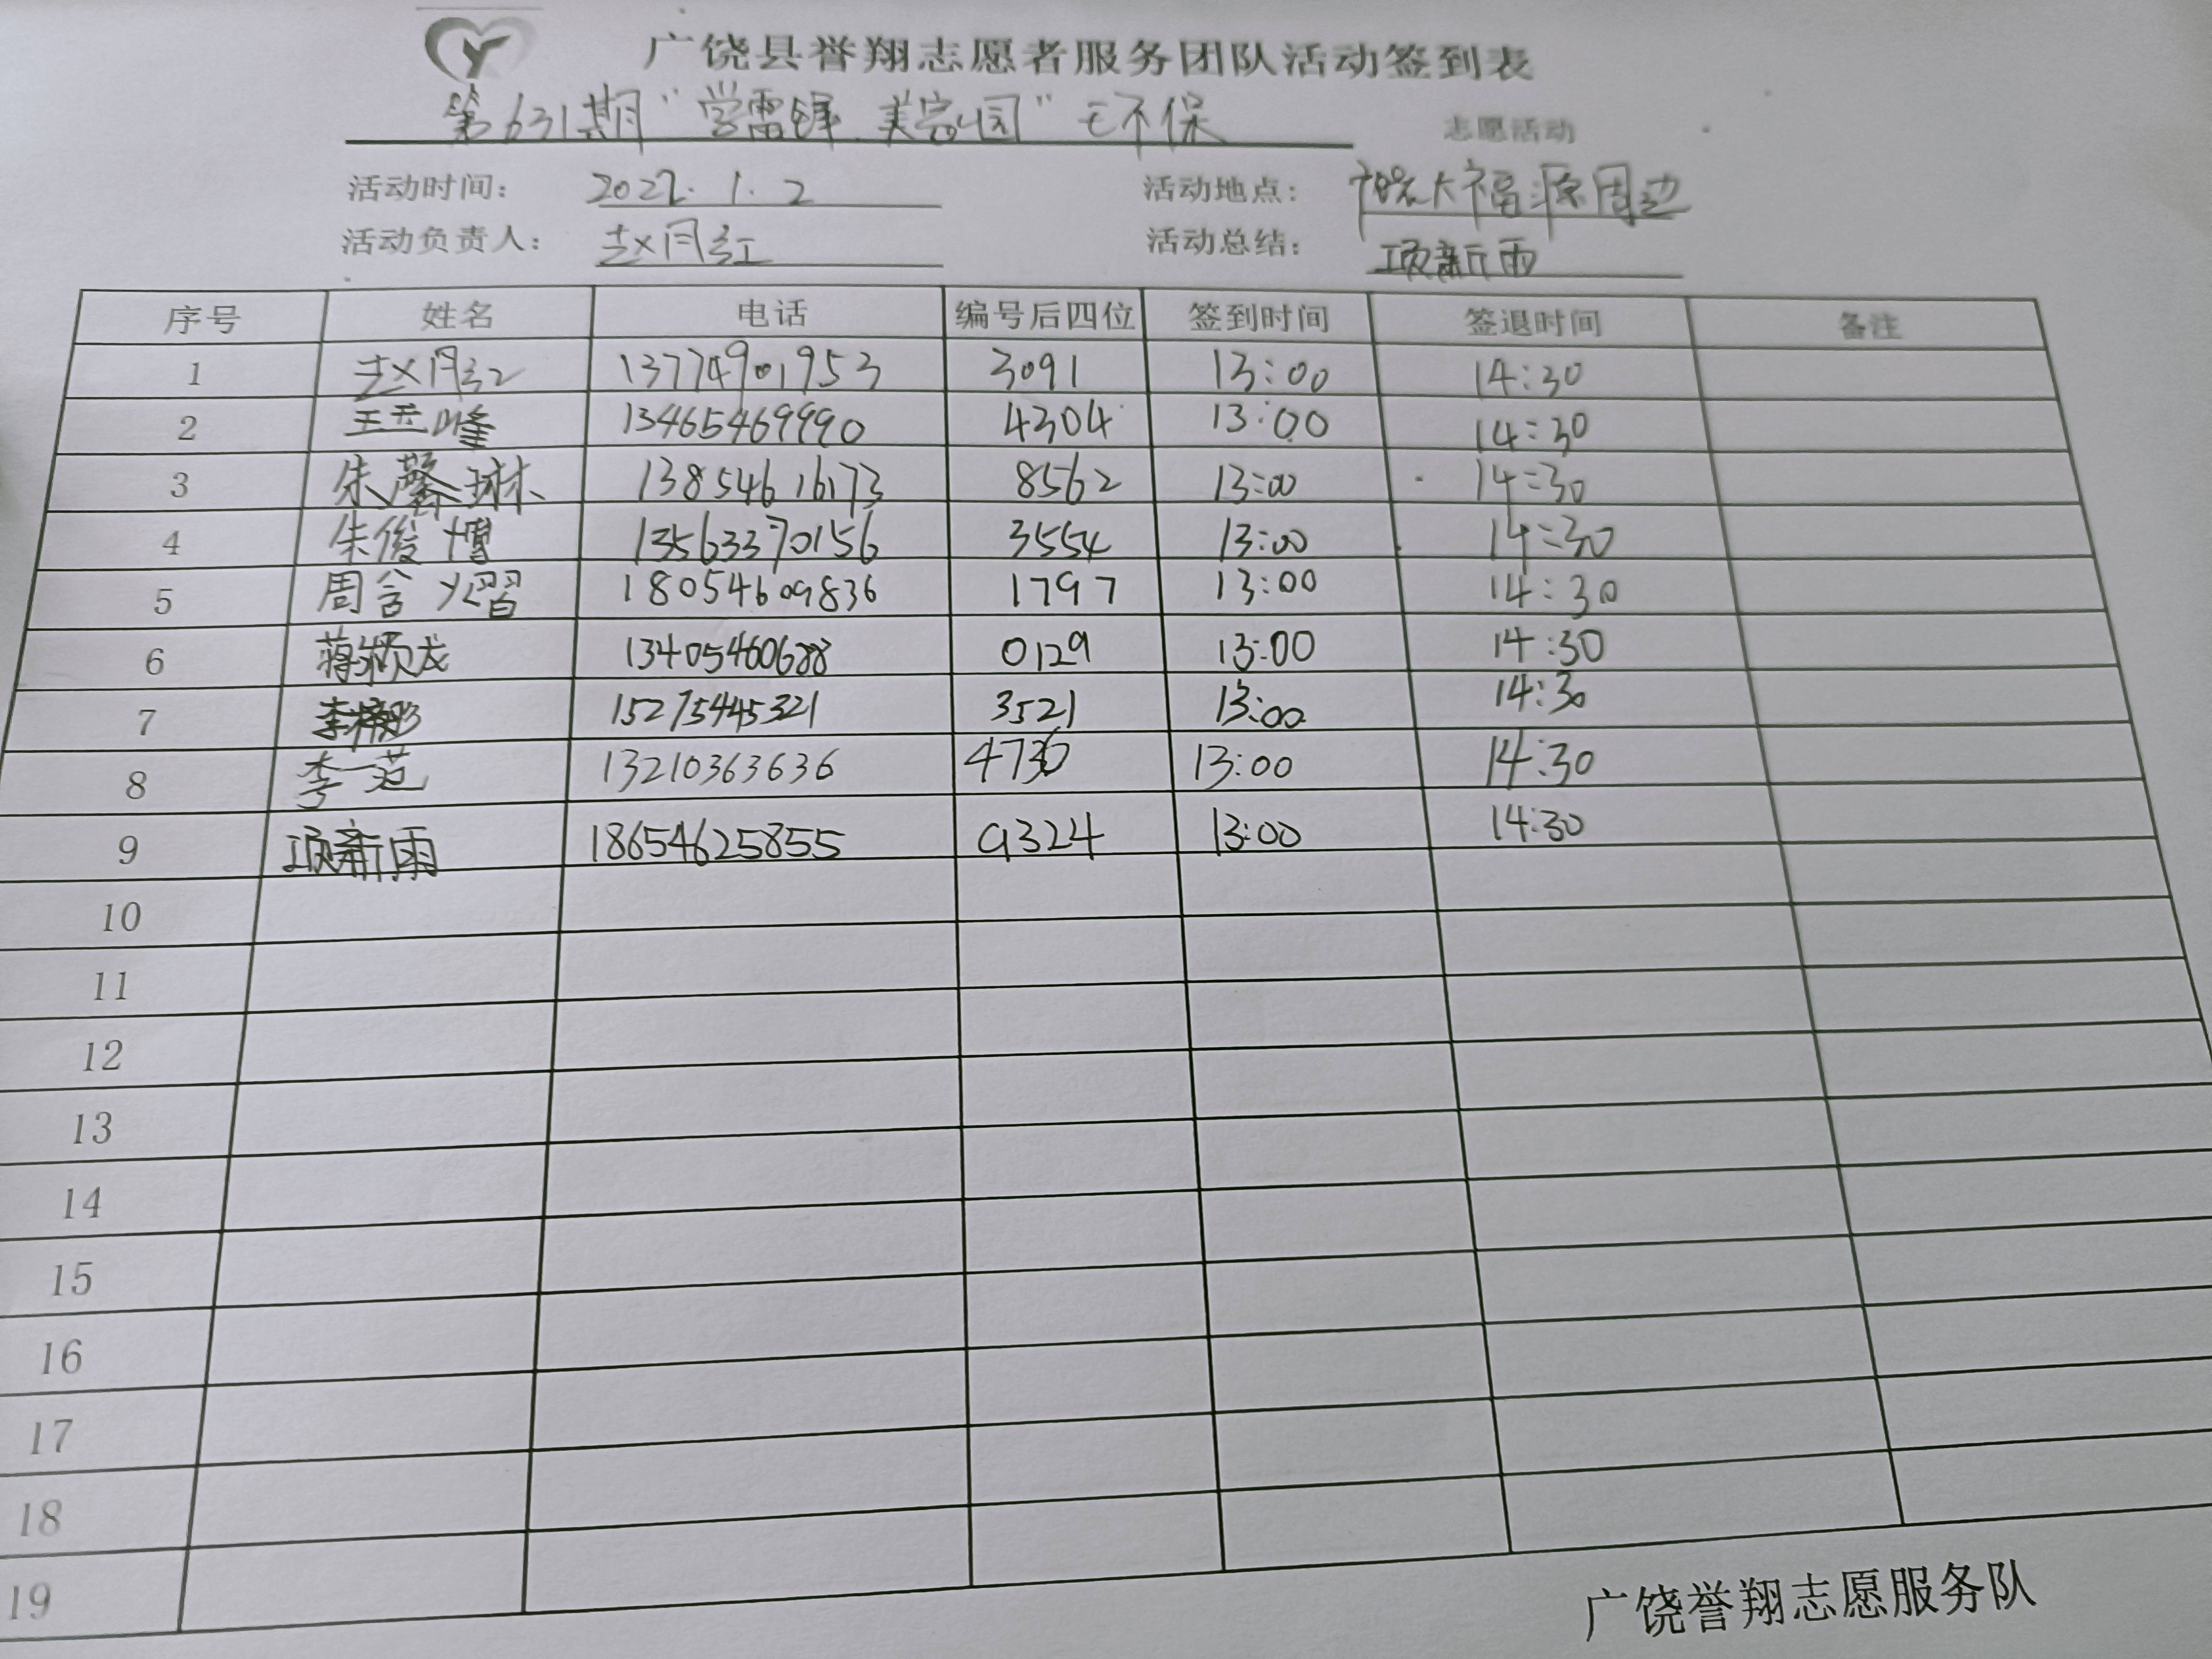 广饶县誉翔志愿者服务团队活动签到表
第631期"学雷锋 美家园"环保 志愿活动
活动时间: 2022.1.2 活动地点: 大福源周边
活动负责人: 赵月红 活动总结: 项新雨
序号 姓名 电话 编号后四位 签到时间 签退时间 备注
1 赵月红 13774901953 3091 13:00 14:30
2 王玉峰 13465469990 4304 13:00 14:30
3 朱馨琳 13854616173 8562 13:00 14:30
4 朱俊博 13563370156 3554 13:00 14:30
5 周含熠 18054609836 1797 13:00 14:30
6 13405460688 0129 13:00 14:30
7 15275445321 3521 13:00 14:30
8 李一范 13210363636 13:00 14:30
9 项新雨 18654625855 9324 13:00 14:30
10
11
12
13
14
15
16
17
18
19
广饶誉翔志愿服务队